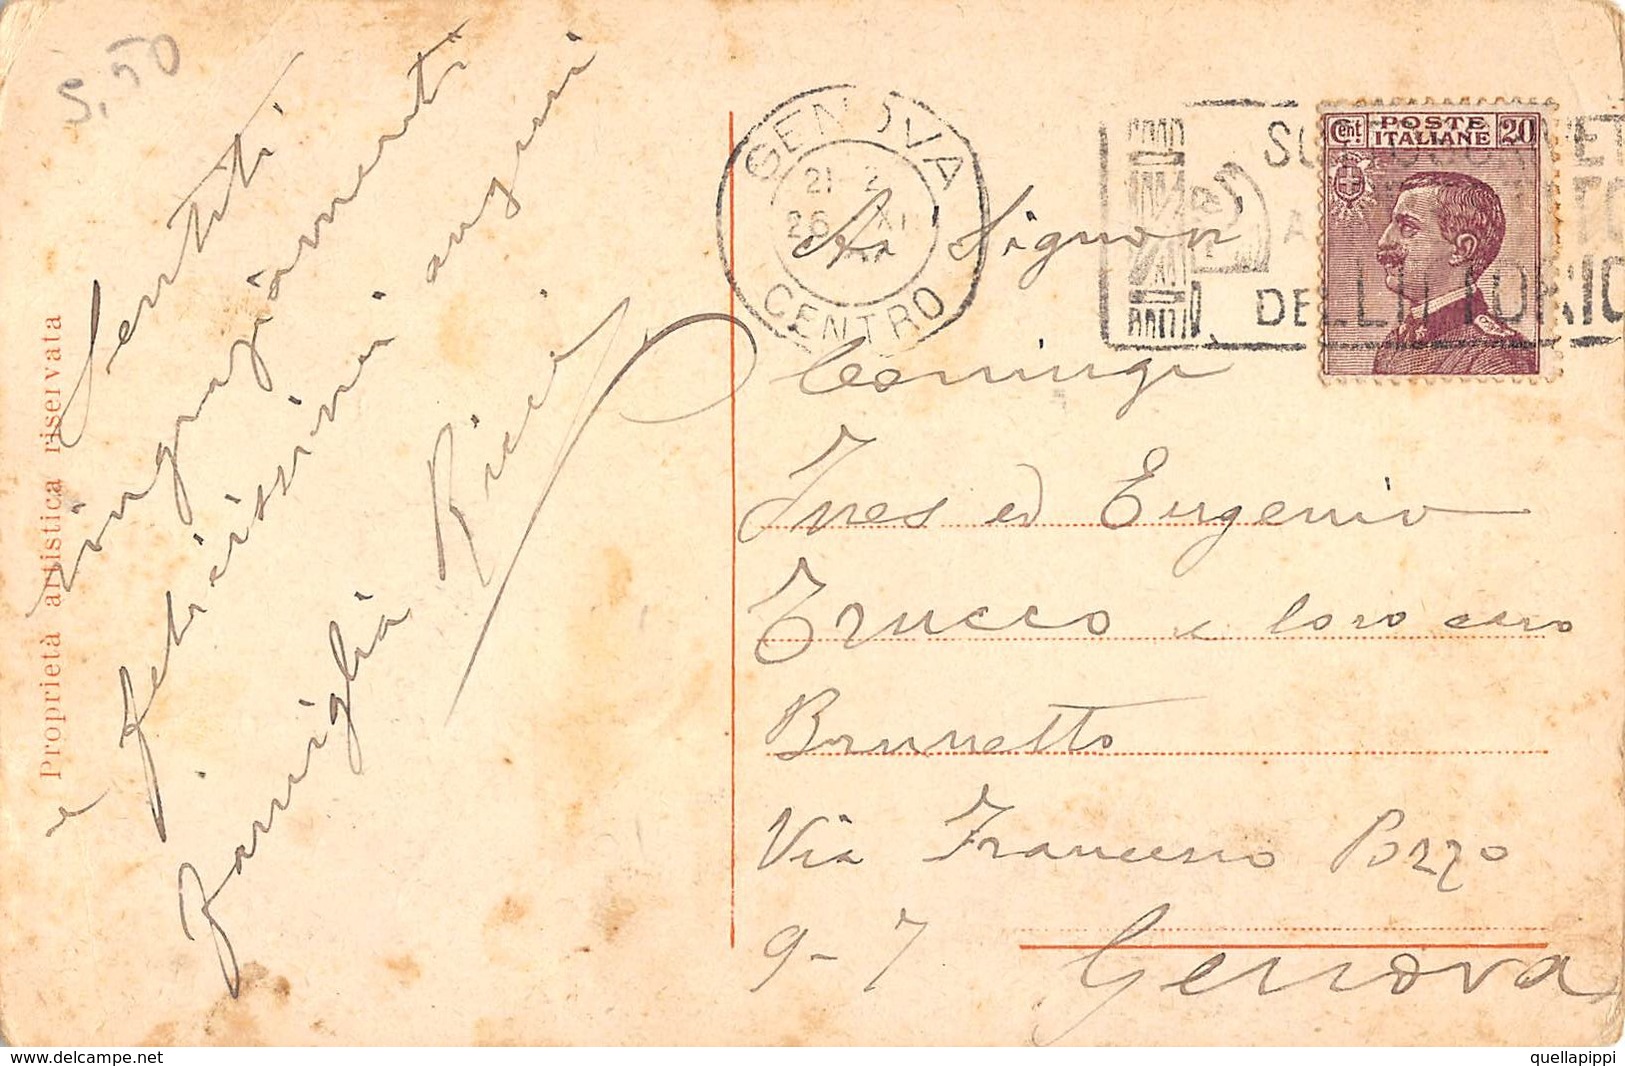 5,50
Proprietà artistica riservata
Sentiti
ringraziamenti
e felicissimi auguri
Famiglia Ricci
GENOVA
CENTRO
21-2
26 XI
DEL LITTORIO
Cent POSTE 20
ITALIANE
Ai Signori
Coniugi
Ines ed Eugenio
Trucco e loro caro
Brunetto
Via Francesco Pozzo
9-7 Genova
www.delcampe.net
quellapippi